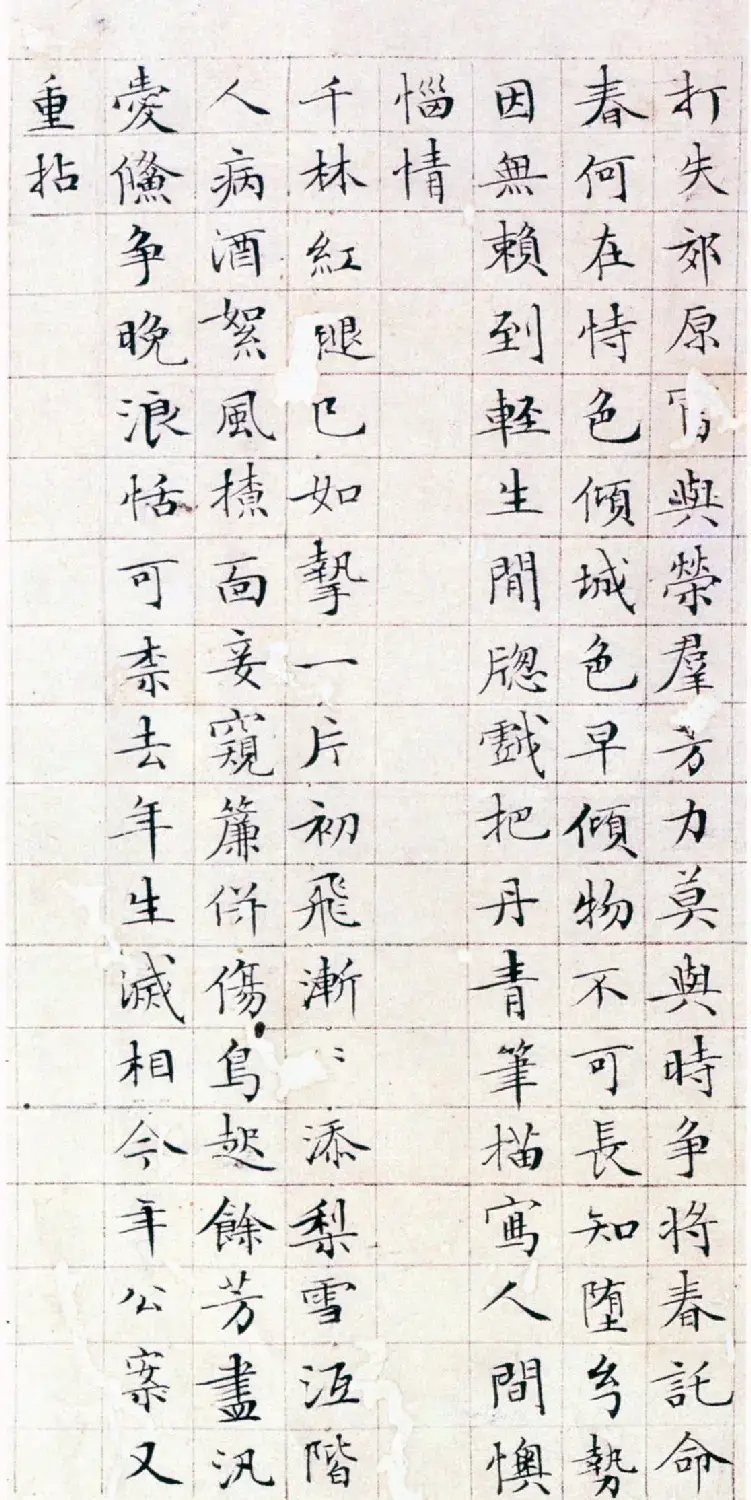 打失郊原富與榮羣芳力莫與時争將春託命
春何在恃色傾城色早傾物不可長知堕兮勢
因無賴到輕生閒牎戲把丹青筆描寫人間懊
惱情
千林紅褪已如摯一片初飛漸〻添梨雪沍階
人病酒絮風㨫面妾窺簾倂傷鳥起餘芳盡汎
愛儵争晚浪恬可柰去年生滅相今年公案又
重拈